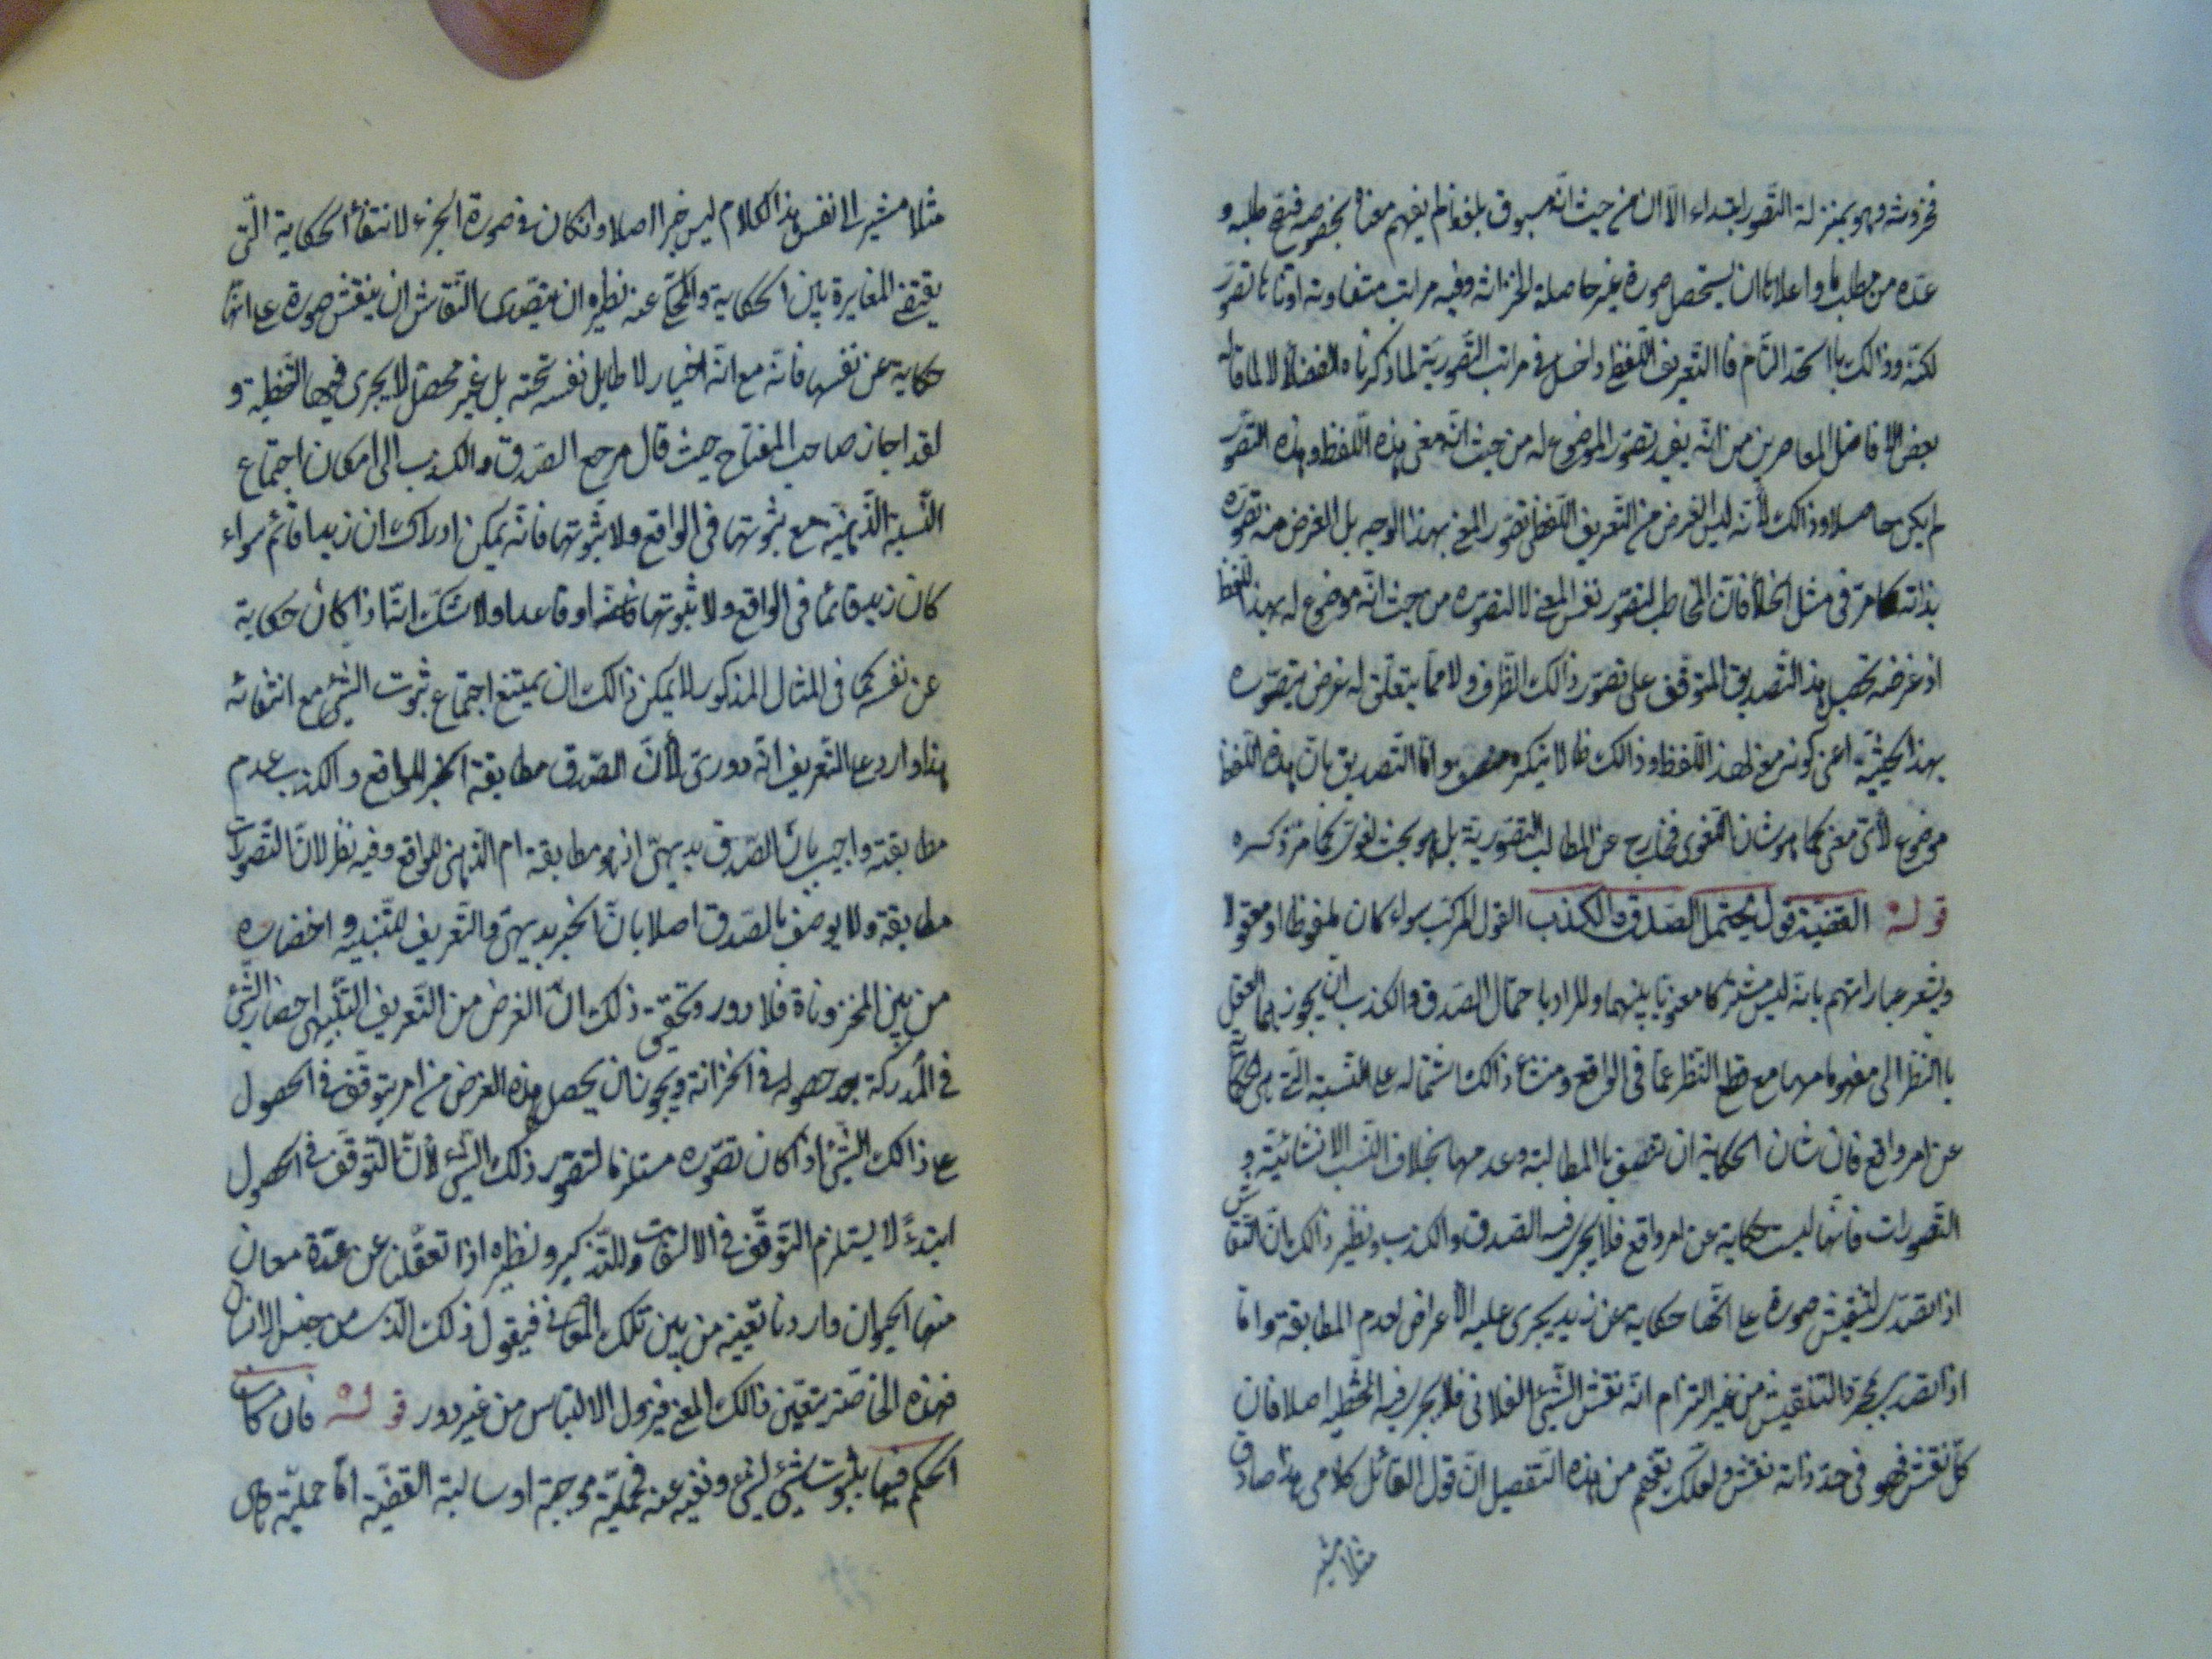 مخزونه وهو بمنزلة التصور ابتداء الا ان من حيث انه مسبوق بلفظ لم يفهم معناه بخصوصه فتصح طلبه و
عده من مطلب ما واعلاها ان يستحصل صورة غير حاصلة فى الخزانة وفيه مراتب متفاوتة اوثانا تصور
لكنه وذالك باالحد التام فاالتعريف اللفظى داخل فى مراتب التصورية لما ذكرناه لا لما قاله
بعض الافاضل المعاصرين من انه يفيد تصور الموضوع له من حيث انه معنى هذه اللفظ وهذه التصور
لم يكن حاصلا وذالك لأنه ليس الغرض من التعريف اللفظى تصور المعنى بهذا الوجه بل الغرض منه تصوره
بذاته كما مر فى مثل الخلأ فان المخاطب تصور نفس المعنى لا لتصوره من حيث انه موضوع له بهذا اللفظ
اذ غرضه تحصيل هذ التصديق المتوقف على تصور ذالك الطرف ولا مما يتعلق له غرض بتصوره
بهذا الحيثية اعنى كونه معنى لهذ اللفظ وذالك مما لا ينكره منصف واما التصديق بان هذه اللفظ
موضوع لأى معنى كما هو شان اللغوى فخارج عن المطالب التصورية بل هو بحث لغوى كما مر ذكره
قوله القضية قول يحتمل الصدق والكذب القول المركب سواء كان ملفوظا او معقولا
ويشعر عباراتهم بانه ليس مشتركا معنويا بينهما والمراد باحتمال الصدق والكذب ان يجوز بهما العقل
باالنظر الى مفهومها مع قطع النظر عما فى الواقع ومنشاء ذالك اشتماله على النسبة التى هى حكاية
عن امر واقع فان شان الحكاية ان تتصف باالمطابقة وعدمها بخلاف النسب الانشائية و
التصورات فانها ليست حكاية عن امر واقع فلا يجرى فيه الصدق والكذب ونظير ذالك ان النقاش
اذا تصدى لتنقيش صورة على انها حكاية عن زيد يجرى عليه الأعراض لعدم المطابقة واما
اذا تصدى بمجرد التنقيش من غير التزام انه نقش الشئ الفلانى فلا يجرى فيه التخطيه اصلا فان
كل نقش فهو فى حد ذاته نقش ولعلك تفهم من هذه التفصيل ان قول القائل كلامى هذا صادق
مثلا مشير
مثلا مشير الى نفس هذا الكلام ليس خبرا اصلا وان كان فى صورة الخبر لانتفأ الحكاية التى
يقتضى المغايرة بين الحكاية والمحكى عنه نظيره ان يتصدى النقاش ان ينقش صورة على انها
حكاية عن نفسها فانه مع انه اخبار لا طايل نفسه تحته بل غير محصل لا يجرى فيها التخطية و
لقد اجاز صاحب المفتاح حيث قال مرجع الصدق والكذب الى امكان اجتماع
النسبة الذهنية مع ثبوتها فى الواقع ولا ثبوتها فانه يمكن ادراك ان زيدا قائم سواء
كان زيد قائما فى الواقع ولا ثبوتها او قاعدا ولا شك انها اذا كان حكاية
عن نفسه كما فى المثال المذكور لا يمكن ذالك ان يمتنع اجتماع ثبوت الشئ مع انتفائه
هذا وارد على التعريف انه دورى لأن الصدق مطابقة الخبر للواقع والكذب عدم
مطابقته واجيب بان الصدق بديهى اذ هو مطابقة ام الذهنى للواقع وفيه نظر لان التصورات
مطابقة ولا يوصف باالصدق اصلا بان الخبر بديهى والتعريف للتنبيه و احضاره
من بين المخزونات فلا دور وتحقيق ذلك ان الغرض من التعريف التنبيهى احضار الشئ
فى المدركة بعد حصوله فى الخزانة ويجوز ان يحصل هذه الغرض من امر يتوقف فى الحصول
على ذالك الشئ اذا كان تصوره مستلزما لتصور ذلك الشئ لأن التوقف فى الحصول
ابتدءً لا يستلزم التوقف فى الالتفات والتذكير ونظيره اذا تعقلنا عن عدة معان
منها الحيوان واردنا تعيينه من بين تلك المعانى فيقول ذلك الذى من جنس الانسان
فهذه الخاصة يتعين ذالك المعنى فيزول الالتباس من غير دور قوله فان كان
الحكم فيها بثبوت شئ لشئ ونفيه عنه فحملية موجبة او سالبة القضية اما حملية وهى